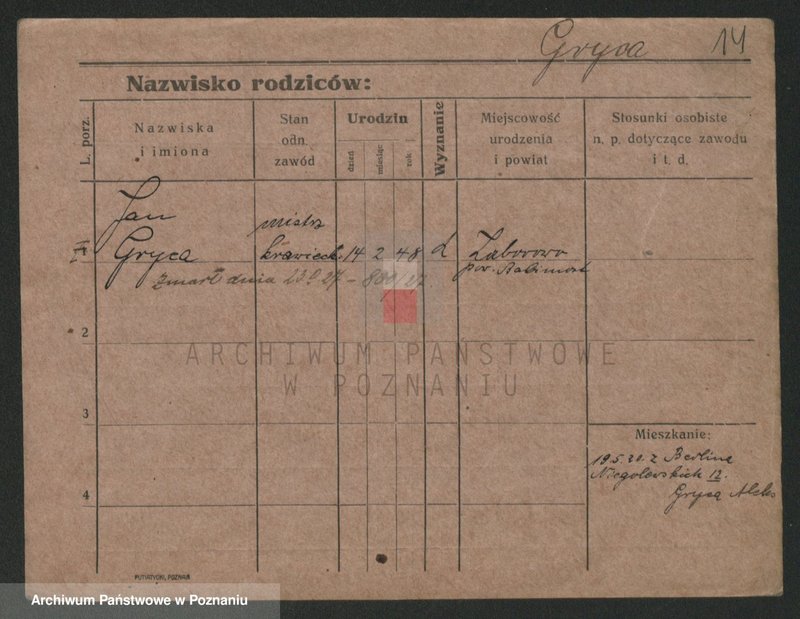 Gryca 14
Nazwisko rodziców:
L. porz.
Nazwiska
i imiona
Stan
odn.
zawód
Urodzin
dzień
miesiąc
rok
Wyznanie
Miejscowość
urodzenia
i powiat
Stosunki osobiste
n. p. dotyczące zawodu
i t. d.
Jan
Gryca
mistrz
krawieck.
14 2 48
Zaborowo
pow. Babimost
zmarł dnia 27
2
3
4
ARCHIWUM PAŃSTWOWE
W POZNANIU
Mieszkanie:
19.5.20. z Berlina
Niegolewskich 12.
Gryca Aleks
PUTIATYCKI, POZNAŃ
Archiwum Państwowe w Poznaniu